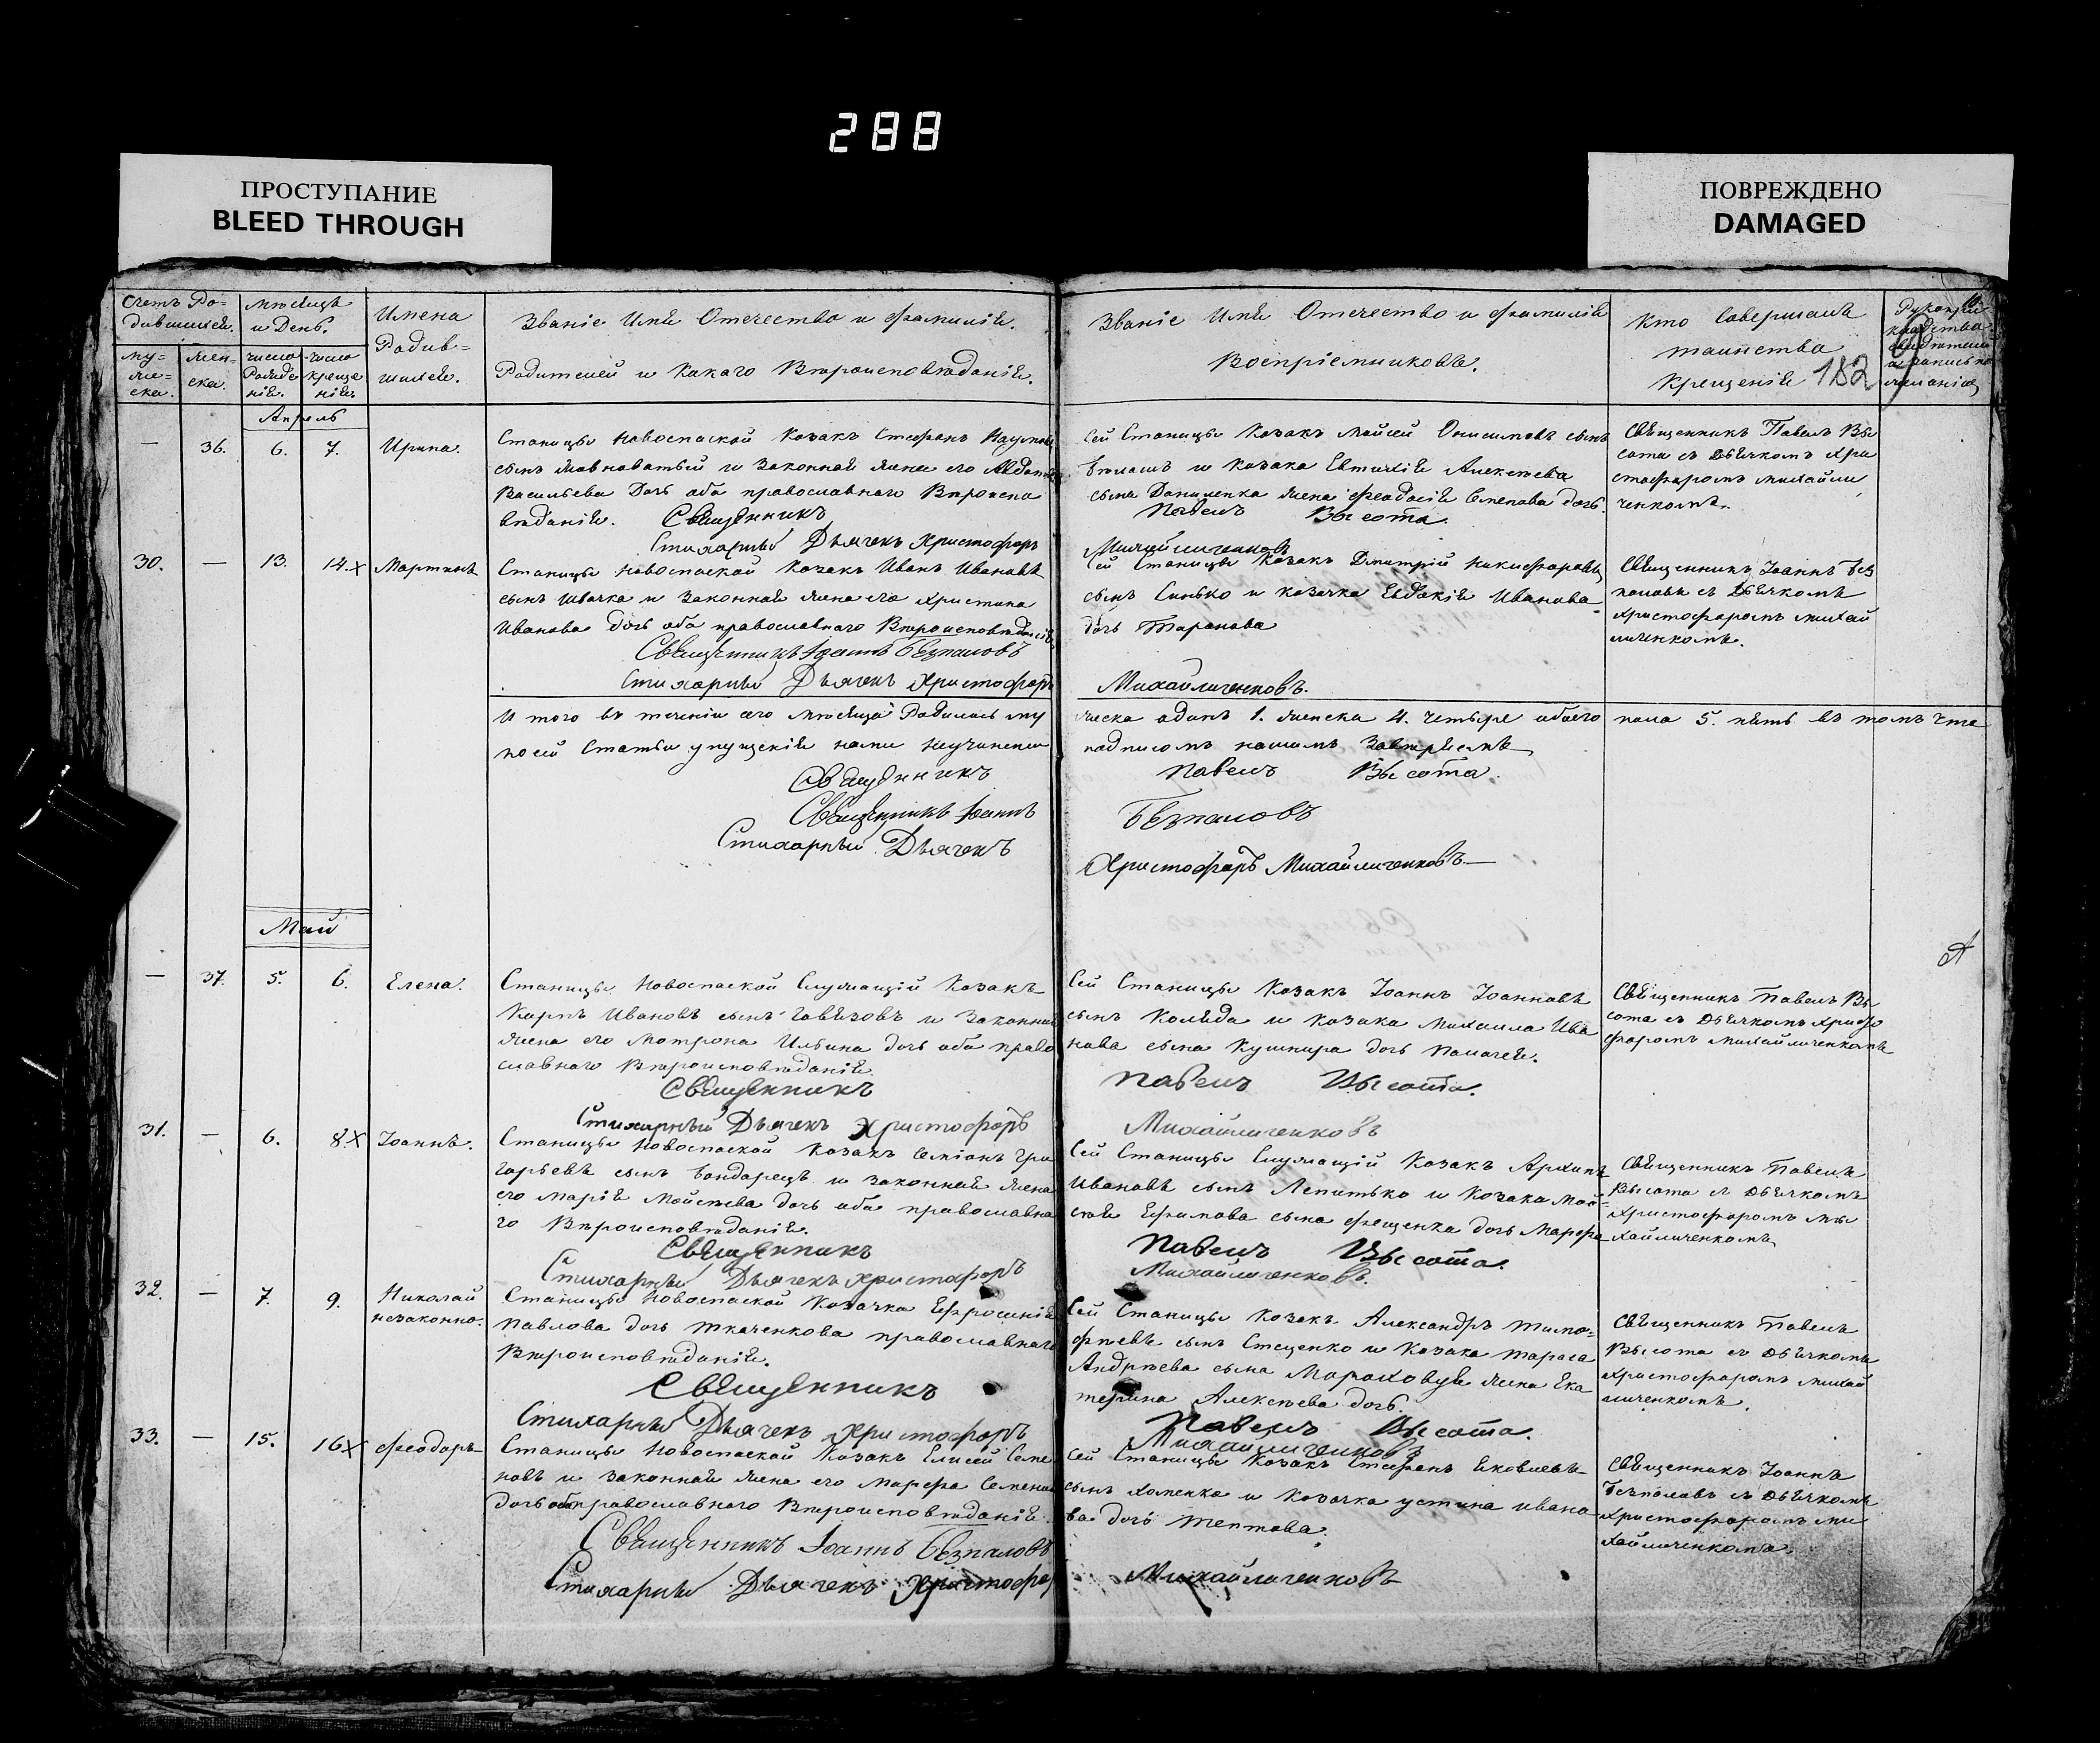 288
ПРОСТУПАНИЕ
BLEED THROUGH
ПОВРЕЖДЕНО
DAMAGED
Счетъ Ро=
дившихся.
Мѣсяцъ
и День.
Имена
Родив=
шихся.
Званіе Имя Отечество и Фамилія
Родителей и Какаго Вѣроисповѣданія.
му=
же=
ска.
жен=
ска.
число
Рожде
нія.
число
креще
нія
Званіе Имя Отечество и Фамилія
Воспріемниковъ.
Кто Совершалъ
таинство
Крещенія
182
Апрель
— 36. 6. 7. Ирина.
Станицы Новоспаской Козакъ Стефанъ Наумовъ
сынъ Головноватый и Законная жена его
Васильева Дочь оба православнаго Вѣроиспо
вѣданія. Священникъ
Стихарный Дьячекъ Христофоръ
Сей Станицы Козакъ Мойсей Онисимовъ сынъ
и Козака Евтихія Алексѣева
сына Даниленка жена Феодосія Степова дочь
Павелъ Высота.
Михайличенковъ
Священникъ Павелъ Вы
сота съ Дьячкомъ Хри
стофоромъ Михайли
ченкомъ.
30. — 13. 14.x Мартинъ
Станицы Новоспаской Козакъ Иванъ Ивановъ
сынъ Швачка и Законная жена его Христина
Иванова дочь оба православнаго Вѣроисповѣданія
Священникъ Іоаннъ Безпаловъ
Стихарный Дьячекъ Христофоръ
Сей Станицы Козакъ Дмитрій Никифоровъ
сынъ Синько и козачка Евдокія Иванова
дочь Таранова
Михайличенковъ.
Священникъ Іоаннъ Без
паловъ съ Дьячкомъ
Христофоромъ Михай
личенкомъ.
И того въ теченіи сего Мѣсяца Родилось му
жеска одинъ 1. женска 4. четыре обоего пола 5. пять въ томъ что
по сей Статьи упущенія нами неучинено
подписомъ нашимъ Завѣряемъ
Священникъ Павелъ Высота.
Священникъ Іоаннъ Безпаловъ
Стихарный Дьячекъ Христофоръ Михайличенковъ
Май
— 37. 5. 6. Елена.
Станицы Новоспаской Служащій Козакъ
Карпъ Ивановъ сынъ и Законная
жена его Мотрона Ильина дочь оба право
славнаго Вѣроисповѣданія
Священникъ
Стихарный Дьячекъ Христофоръ
Сей Станицы Козакъ Іоаннъ Іоанновъ
сынъ Коляда и Козака Михаила Ива
нова сына Кушнира дочь Палагея.
Павелъ Высота.
Михайличенковъ
Священникъ Павелъ Вы
сота съ Дьячкомъ Христо
форомъ Михайличенкомъ
31. — 6. 8.x Іоаннъ.
Станицы Новоспаской Козакъ Семіонъ Гри
горьевъ сынъ Бондарецъ и законная жена
его Марія Мойсѣева дочь оба православна
го Вѣроисповѣданія.
Священникъ
Стихарный Дьячекъ Христофоръ
Сей Станицы Служащій Козакъ Архипъ
Ивановъ сынъ Лепитько и Козака Мой
сѣя Ефимова сына Фещенка дочь Марфа
Павелъ Высота.
Михайличенковъ.
Священникъ Павелъ
Высота съ Дьячкомъ
Христофоромъ Ми
хайличенкомъ
32. — 7. 9. Николай
незаконно.
Станицы Новоспаской Козачка Ефросинія
Павлова дочь Ткаченкова православнаго
Вѣроисповѣданія.
Священникъ
Стихарный Дьячекъ Христофоръ
Сей Станицы Козакъ Александръ Тимо=
фѣевъ сынъ Стеценко и Козака Тараса
Андрѣева сына жена Ека
терина Алексѣева дочь.
Павелъ Высота.
Михайличенковъ
Священникъ Павелъ
Высота съ Дьячкомъ
Христофоромъ Михай
личенкомъ.
33. — 15. 16x Феодоръ
Станицы Новоспаской Козакъ Елисей Семе
новъ и законная жена его Марфа Семенова
дочь оба православнаго Вѣроисповѣданія.
Священникъ Іоаннъ Безпаловъ
Стихарный Дьячекъ Христофоръ
Сей Станицы Козакъ Стефанъ Яковлевъ
сынъ Хоменко и Козачка Устина Ивано
ва дочь Тептова.
Михайличенковъ
Священникъ Іоаннъ
Безпаловъ съ Дьячкомъ
Христофоромъ Ми
хайличенкомъ.